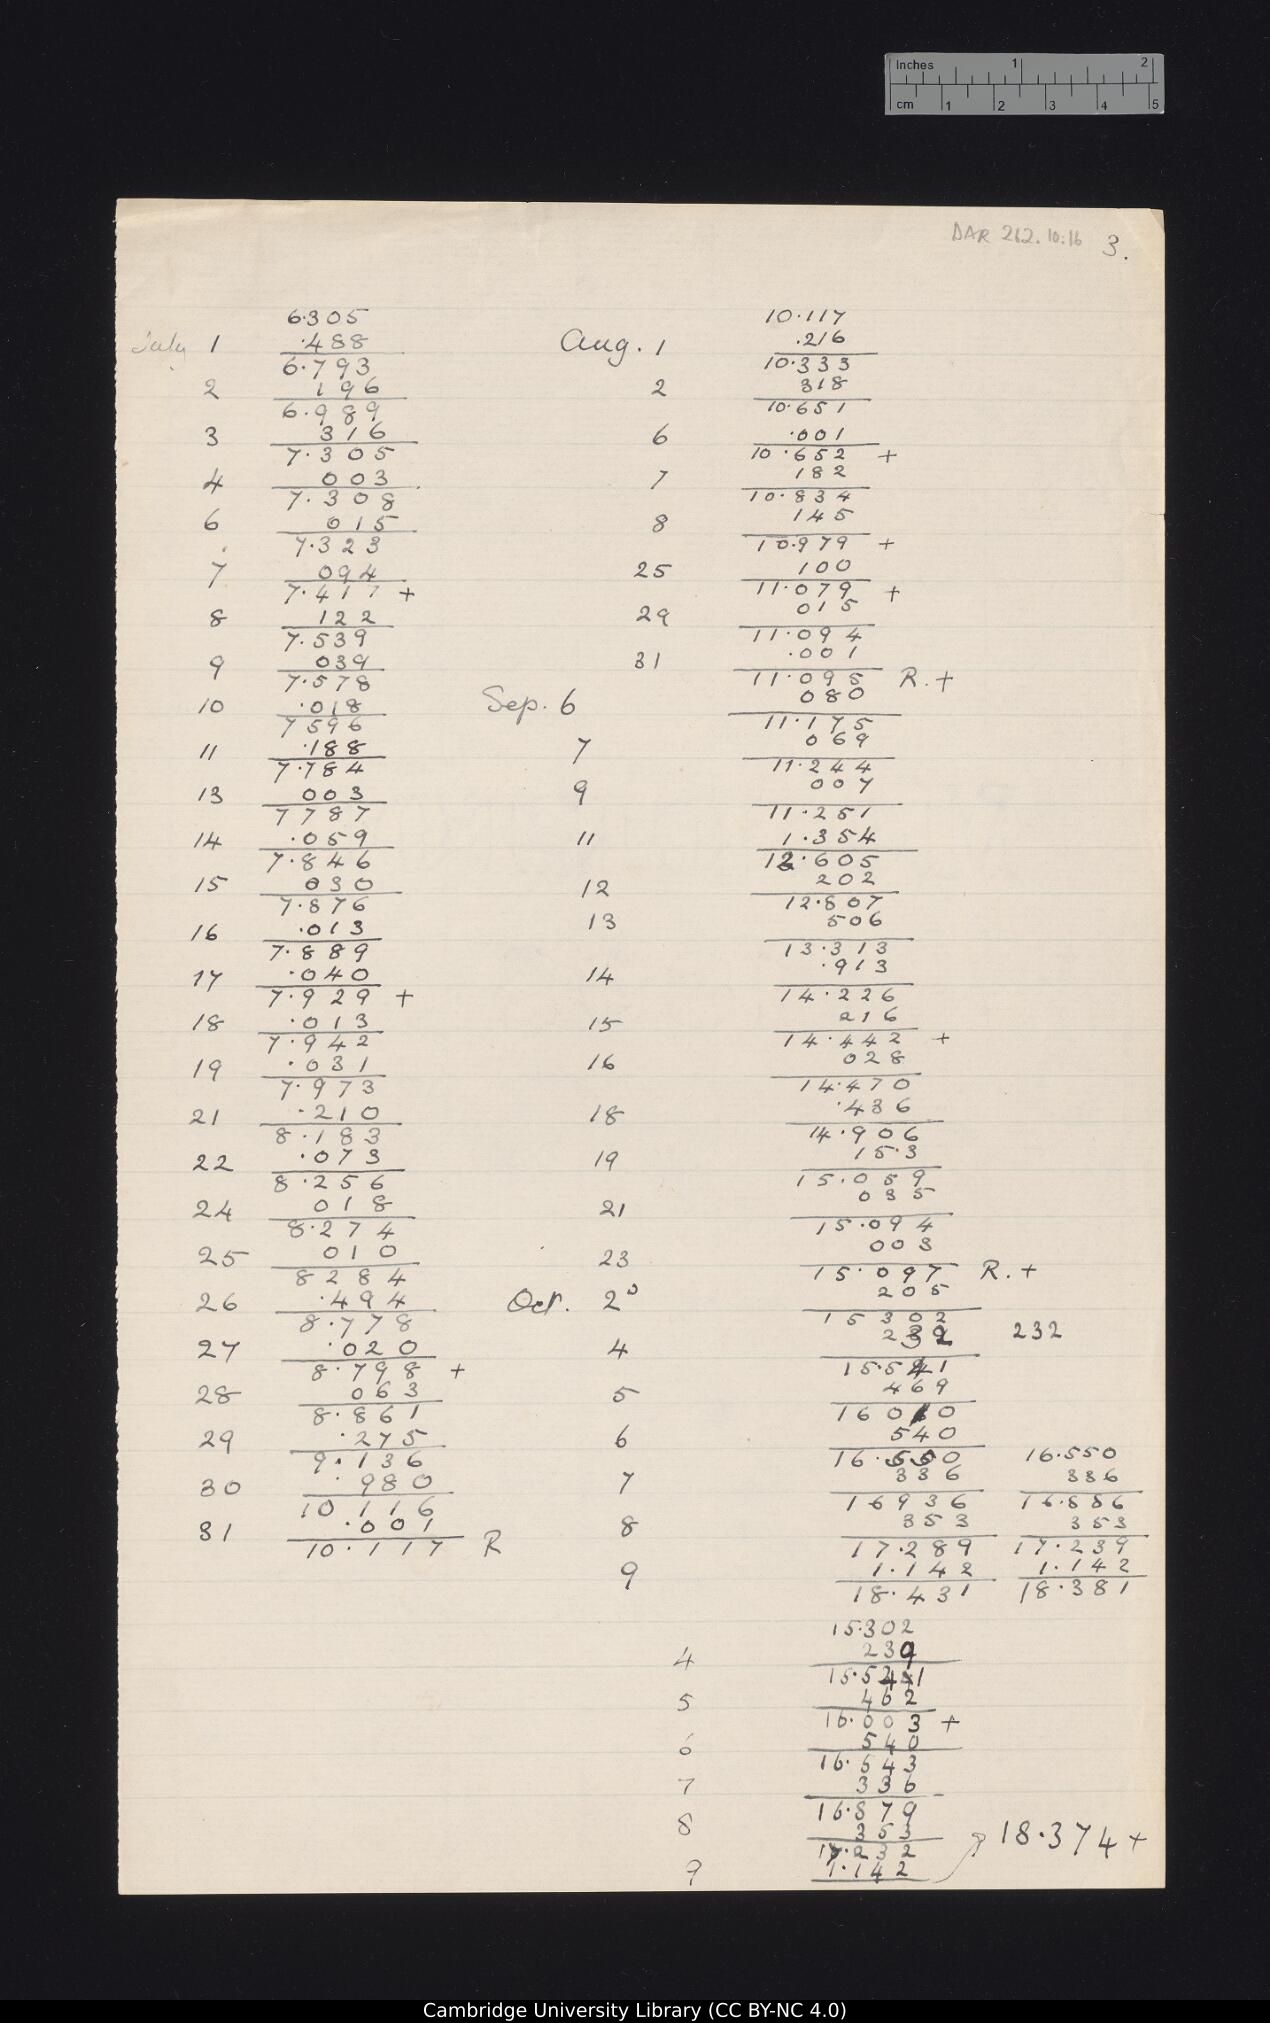 Inches 1 2
cm 1 2 3 4 5
DAR 262.10:16 3.
6.305
July 1 .488
6.793
2 196
6.989
3 316
7.305
4 003
7.308
6 015
7.323
7 094
7.417 +
8 122
7.539
9 039
7.578
10 .018
7596
11 .188
7.784
13 003
7787
14 .059
7.846
15 030
7.876
16 .013
7.889
17 .040
7.929 +
18 .013
7.942
19 .031
7.973
21 .210
8.183
22 .073
8.256
24 018
8.274
25 010
8284
26 .494
8.778
27 .020
8.798 +
28 063
8.861
29 .275
9.136
30 .980
10 116
31 .001
10.117 R
10.117
Aug. 1 .216
10.333
2 318
10.651
6 .001
10.652 +
7 182
10.834
8 145
10.979 +
25 100
11.079 +
29 015
11.094
31 .001
11.095 R. +
Sep. 6 080
11.175
7 069
11.244
9 007
11.251
11 1.354
12.605
12 202
12.807
13 506
13.313
14 .913
14.226
15 216
14.442 +
16 028
14.470
18 .436
14.906
19 153
15.059
21 035
15.094
23 003
15.097 R. +
Oct. 2 205
15302
4 232
15.541
5 469
16010
6 540
16.550
7 336
16936
8 353
17.289
9 1.142
18.431
232
16.550
336
16.886
353
17.239
1.142
18.381
15.302
4 239
15.541
5 462
16.003 +
6 540
16.543
7 336
16.879
8 353
17.232
9 1.142
18.374 +
Cambridge University Library (CC BY-NC 4.0)